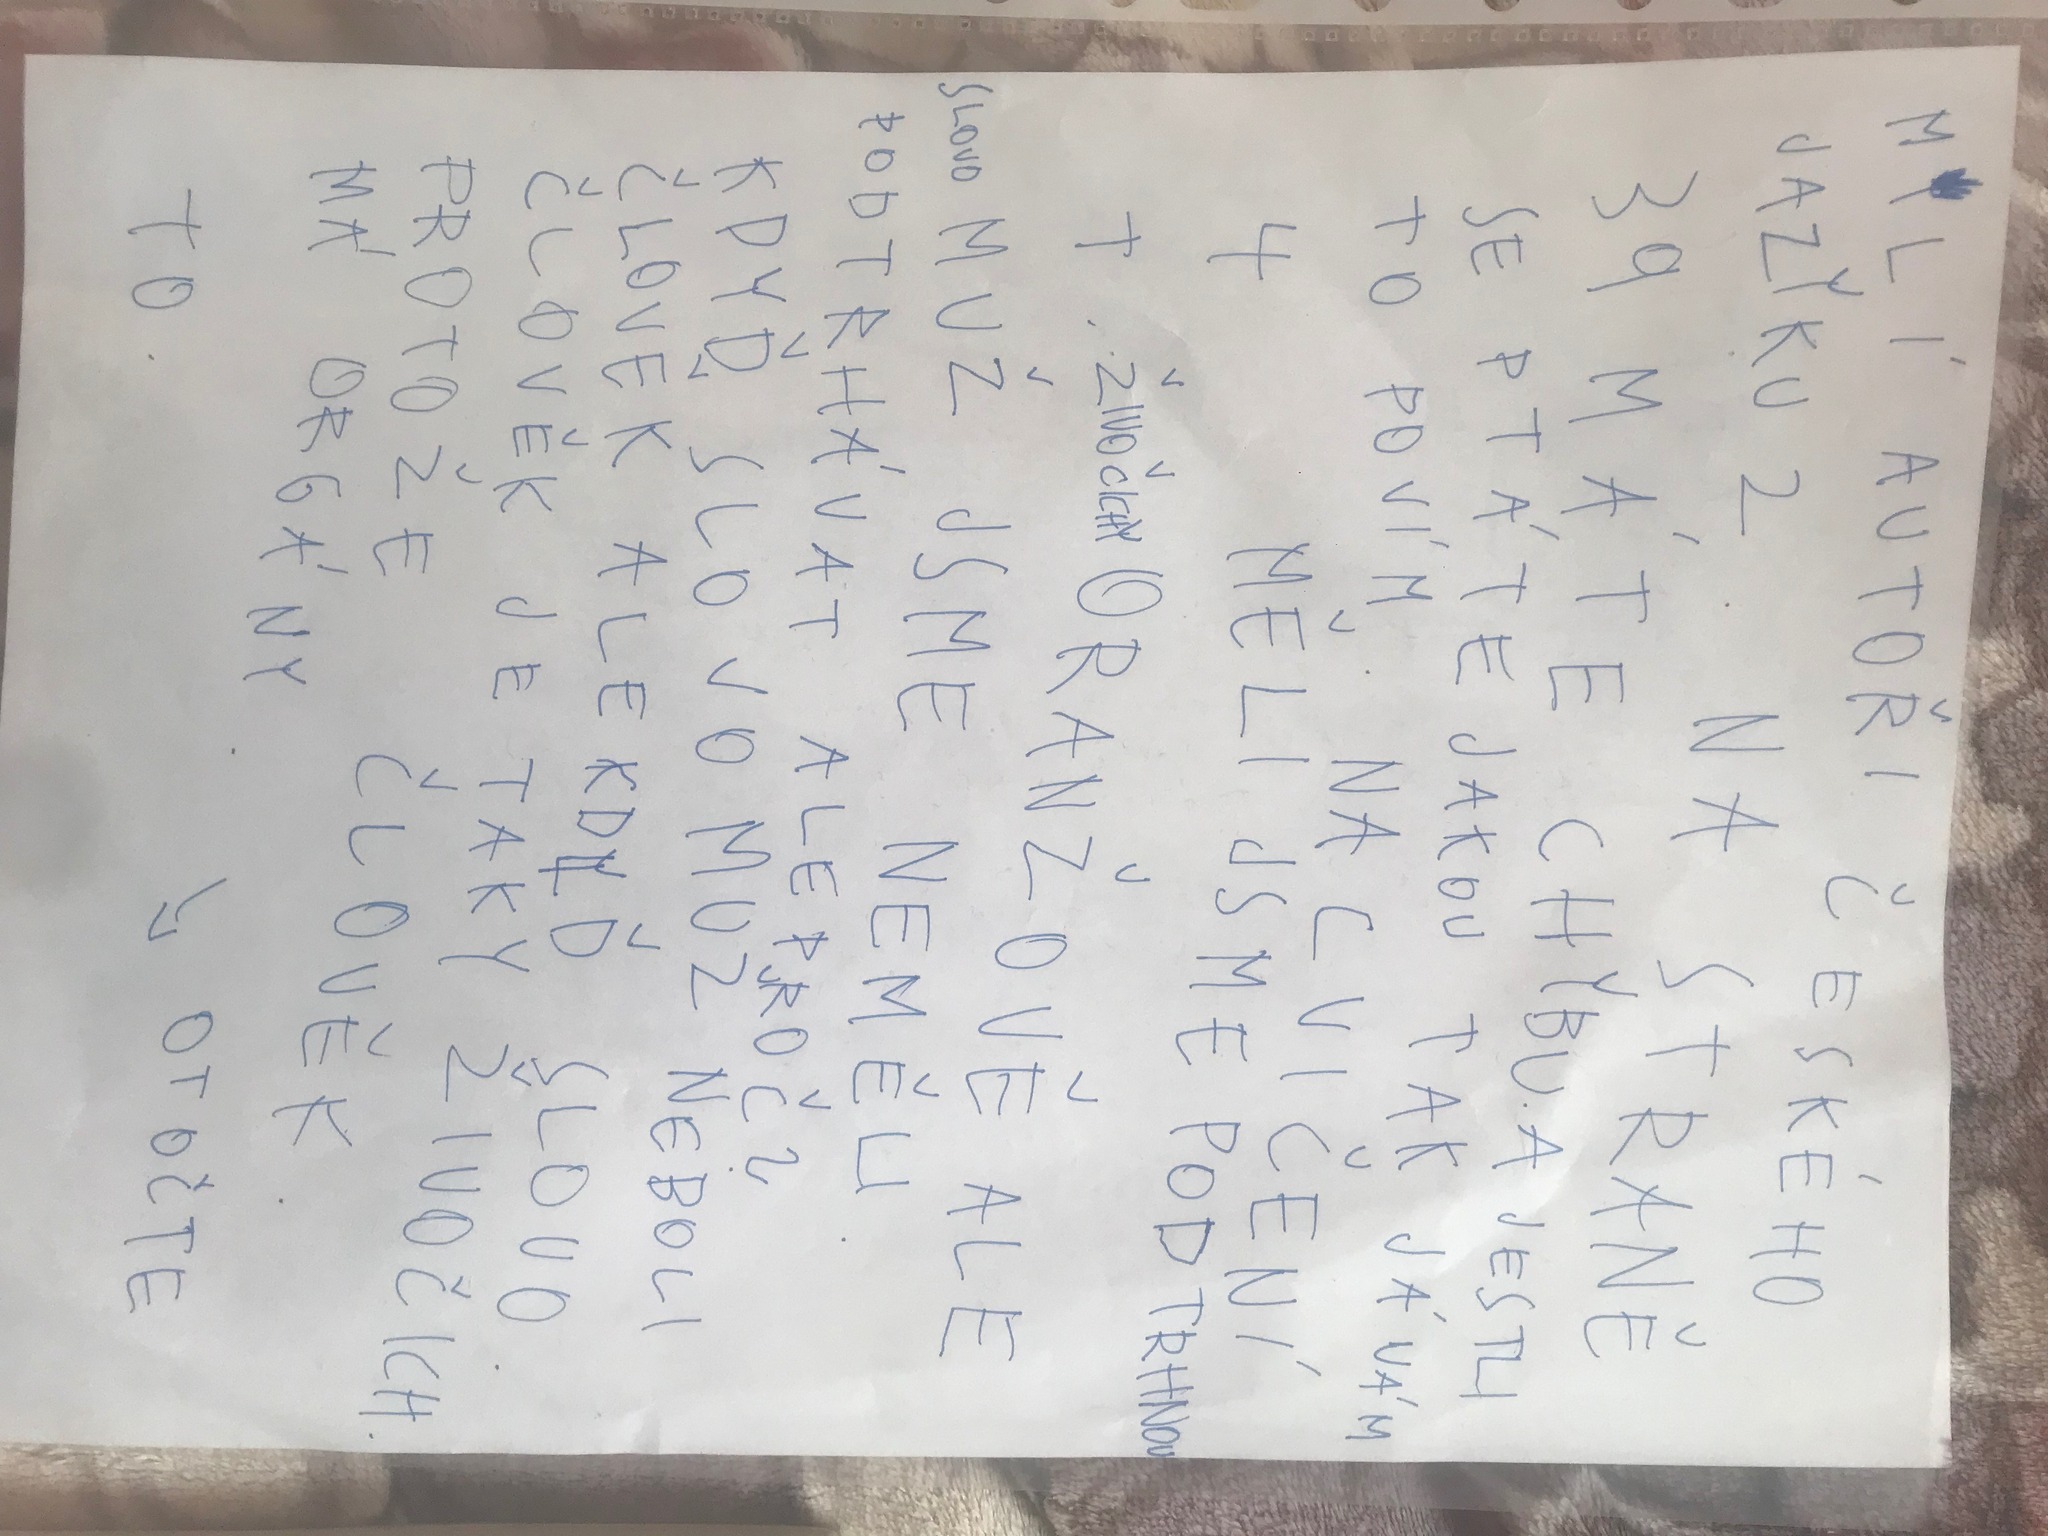 MILÍ AUTOŘI ČESKÉHO
JAZÝKU 2. NA STRANĚ
39 MÁTE CHÝBU. A JESTLI
SE PTÁTE JAKOU TAK JÁ VÁM
TO POVÍM. NA CVIČENÍ
4 MĚLI JSME PODTRHNOU
T. ŽIVOČICHY ORANŽOVĚ ALE
SLOVO MUŽ JSME NEMĚLI
PODTRHÁVAT ALE ALE PROČ?
KDYĎ SLOVO MUŽ NEBOLI
ČLOVĚK ALE ALE KDYĎ SLOVO
ČLOVĚK JE TAKY ŽIVOČICH.
PROTOŽE ČLOVĚK
MÁ ORGÁNY.
TO. → OTOČTE